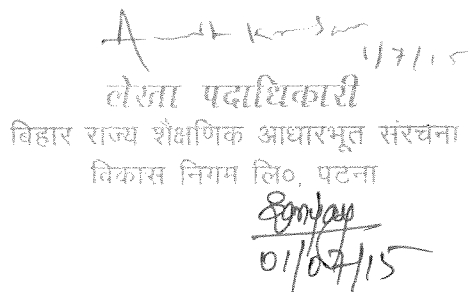 1/7/15
लेखा पदाधिकारी
बिहार राज्य शैक्षणिक आधारभूत संरचना
विकास निगम लि०, पटना
Sanjay
01/07/15